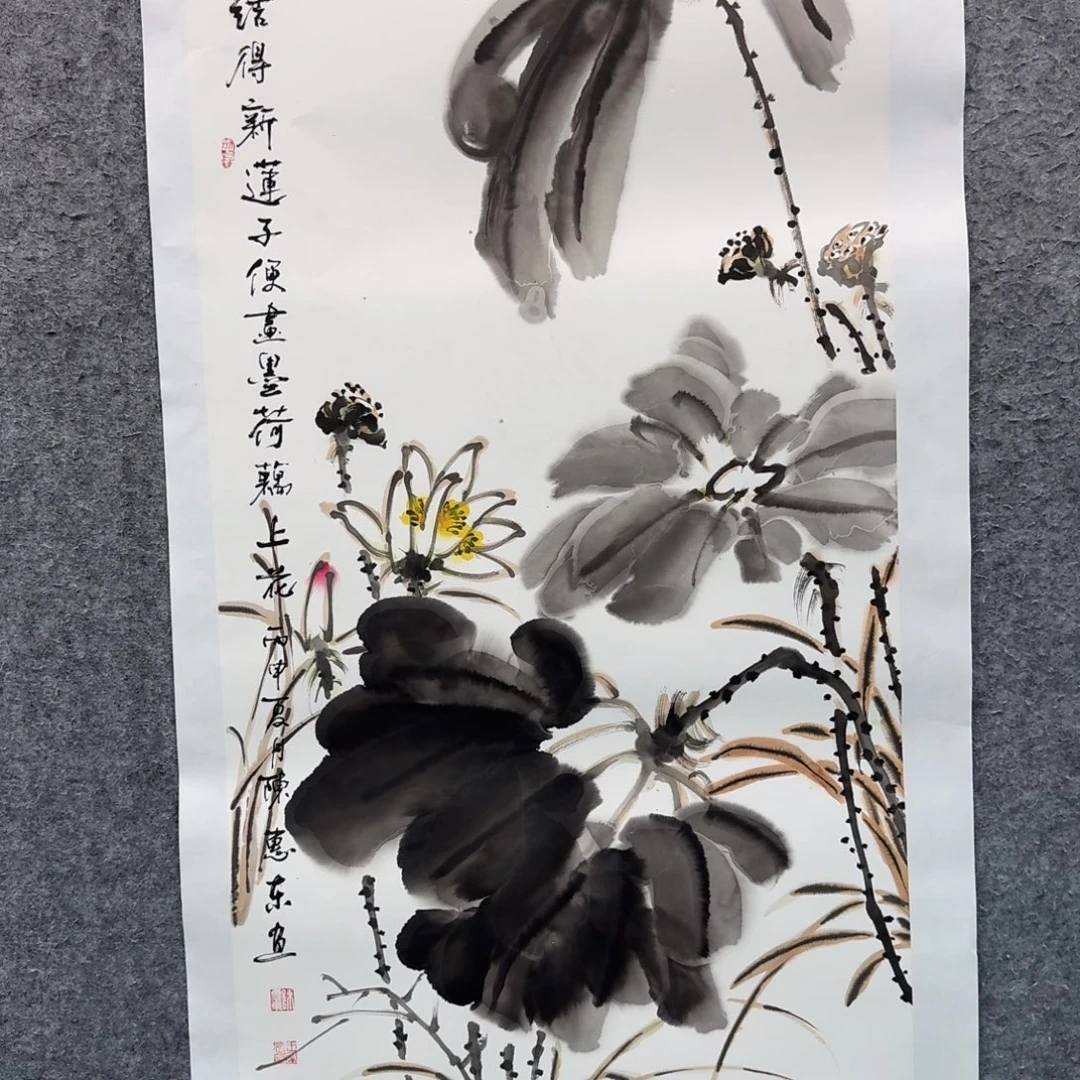 结得新蓮子便畫墨荷藕上花丙申夏月陳惠东画